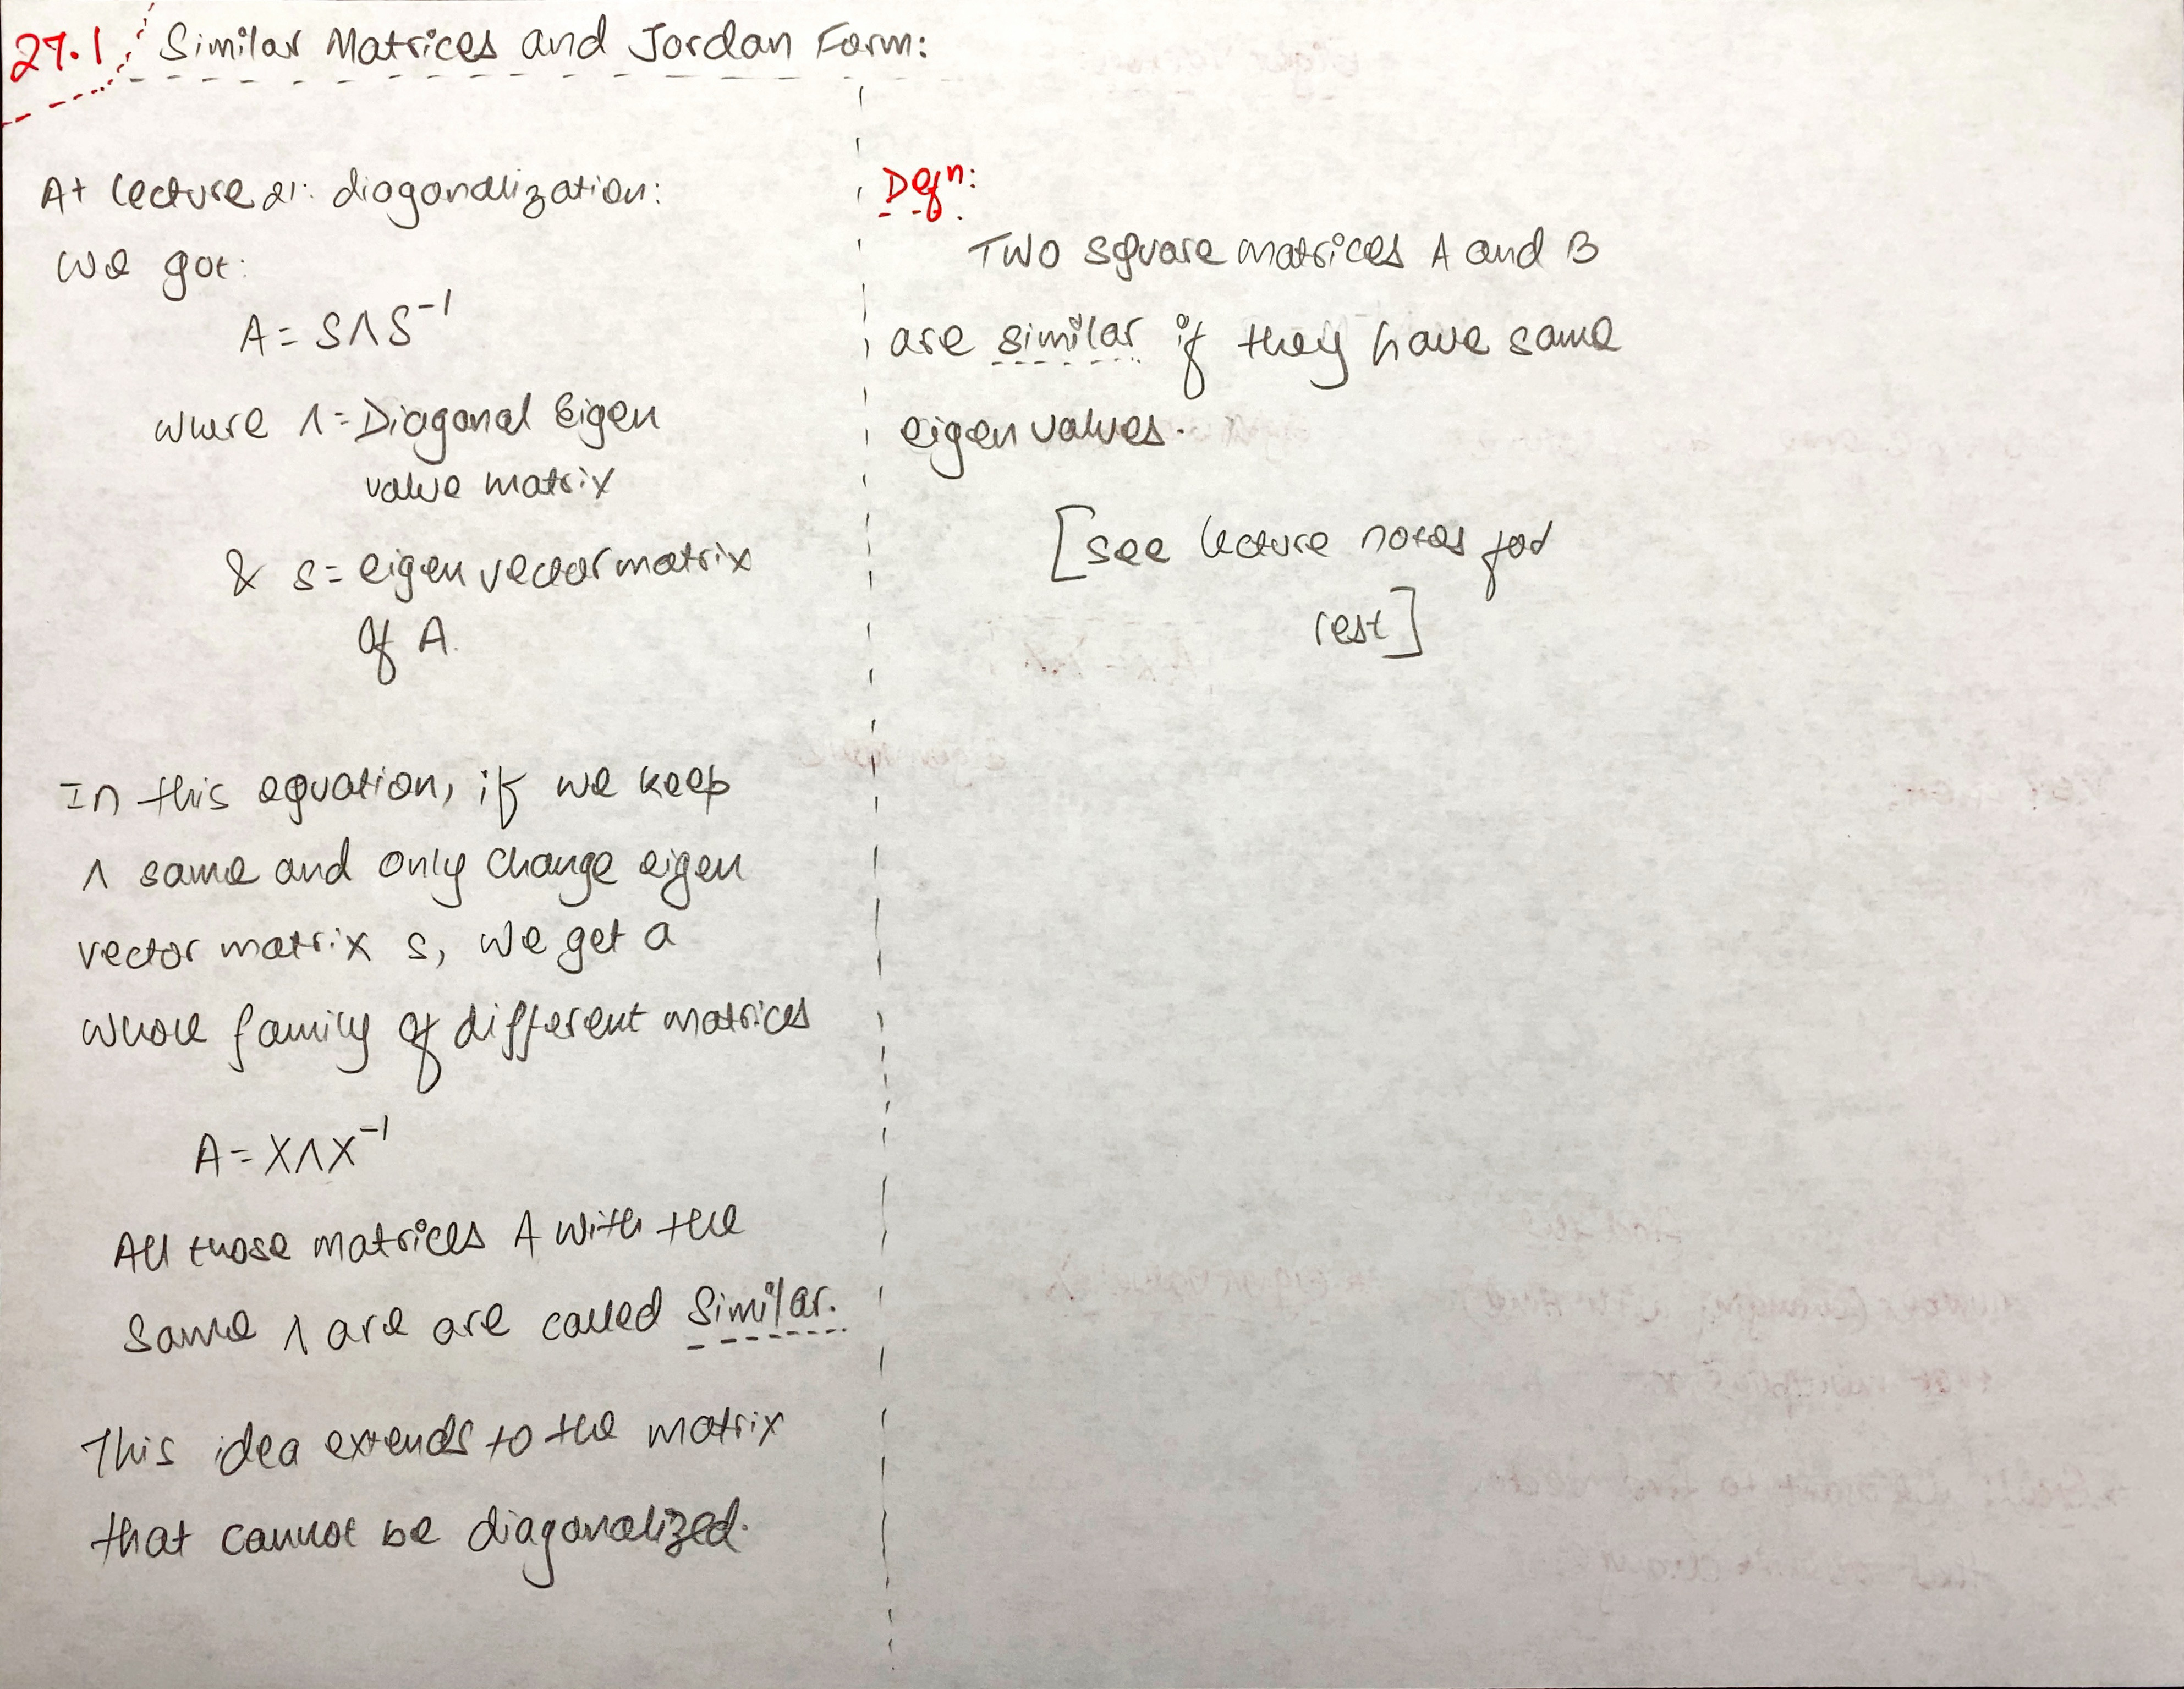 27.1 Similar Matrices and Jordan Form:
At lecture 21: diagonalization:
We got:
A = SΛS⁻¹
where Λ = Diagonal Eigen
value matrix
& s = eigen vector matrix
of A.
In this equation, if we keep
Λ same and only change eigen
vector matrix s, we get a
whole family of different matrices
A = XΛX⁻¹
All those matrices A with the
same Λ are are called Similar.
This idea extends to the matrix
that cannot be diagonalized.
Defⁿ:
Two square matrices A and B
are similar if they have same
eigen values.
[see lecture notes for
rest]